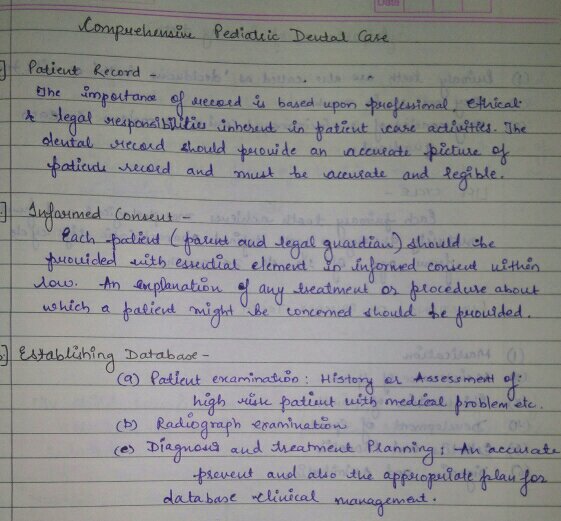 Date
Comprehensive Pediatric Dental Case
] Patient Record -
The importance of record is based upon professional, ethical
& legal responsibilities inherent in patient care activities. The
dental record should provide an accurate picture of
patients record and must be accurate and legible.
] Informed Consent -
Each patient (parent and legal guardian) should be
provided with essential element in informed consent within
law. An explanation of any treatment or procedure about
which a patient might be concerned should be provided.
] Establishing Database -
(a) Patient examination : History or Assessment of
high risk patient with medical problem etc.
(b) Radiograph examination
(c) Diagnosis and treatment Planning : An accurate
prevent and also the appropriate plan for
database clinical management.